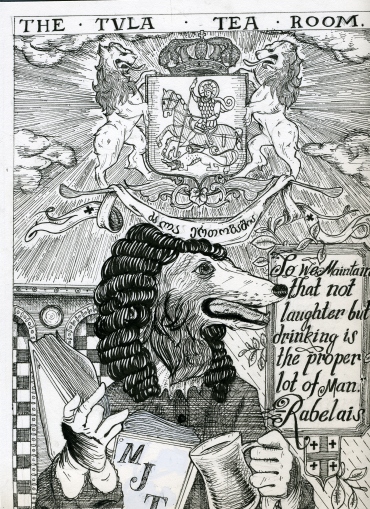 THE · TVLA · TEA · ROOM.
ძალა ერთობაშია
"So We Maintain
that not
laughter but
drinking is
the proper
lot of Man."
Rabelais
M
J
T